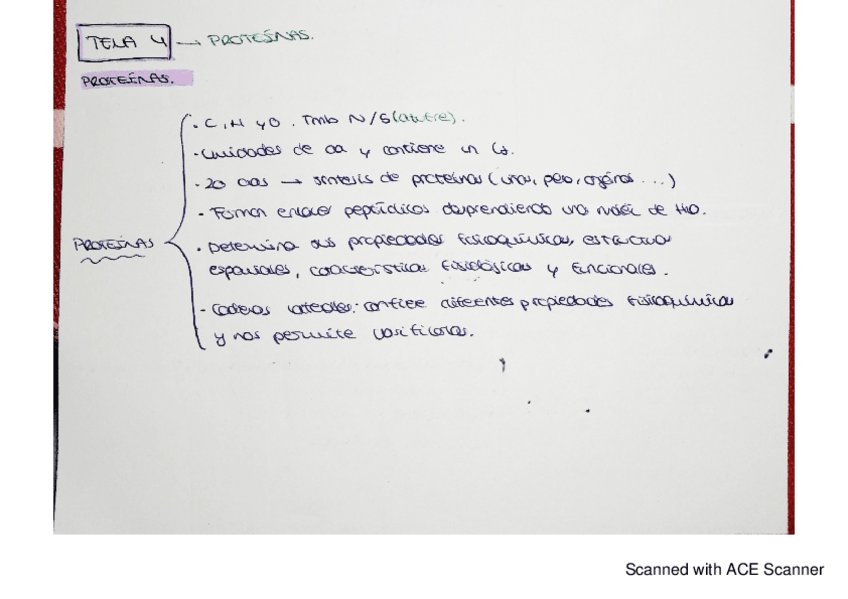 TEMA 4 → PROTEÍNAS.
PROTEÍNAS.
· C, H y O. Tmb N/S (azufre).
· Unidades de aa y contiene un
· 20 aas → síntesis de proteínas (virus, peces, orgános ...)
· Forman enlaces peptídicos desprendiendo una moléc de H2O.
PROTEÍNAS
· Determina sus propiedades fisicoquímicas, estructura
espaciales, características fisiológicas y funcionales.
- Cadenas laterales: confiere diferentes propiedades fisicoquímicas
y nos permite clasificarlas.
Scanned with ACE Scanner